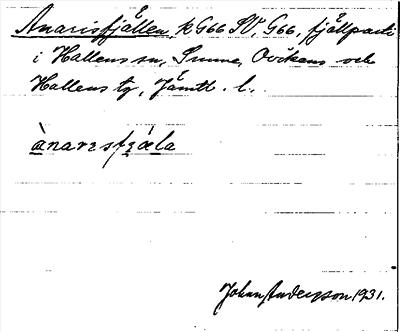 Anarisfjällen, k G66 SV, G66, fjällparti
i Hallens sn, Sunne, Ovikens och
Hallens tg, Jämtl. l.
ànarɪsfjǽla
Johan Anderson 1931.